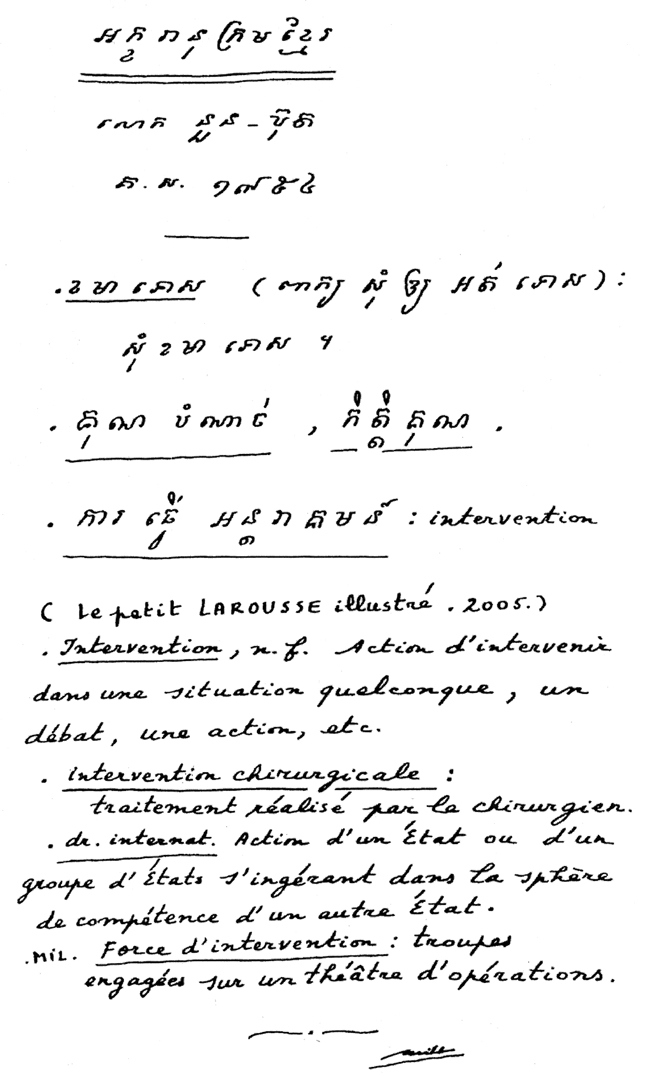 អក្ខរានុក្រមខ្មែរ
លោក នួន-ប៊ុត
គ.ស. ១៩៥៤
. ខមាទោស (ពាក្យ សុំ ឲ្យ អត់ ទោស) :
សុំ ខមា ទោស ។
. គុណ បំណាច់ , កិត្តិគុណ .
. ការ ធ្វើ អន្តរាគមន៍ : intervention
( Le petit LAROUSSE illustré . 2005.)
. Intervention, n.f. Action d'intervenir
dans une situation quelconque, un
débat, une action, etc.
. intervention chirurgicale :
traitement réalisé par le chirurgien.
. dr. internat. Action d'un État ou d'un
groupe d'États s'ingérant dans la sphère
de compétence d'un autre État.
.MIL. Force d'intervention : troupes
engagées sur un théâtre d'opérations.